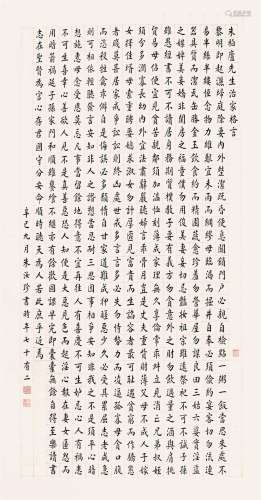 朱柏廬先生治家格言
黎明即起灑掃庭除要內外整潔既昏便息關鎖門戶必親自檢點一粥一飯當思來處不
易半絲半縷恆念物力維艱宜未雨而綢繆毋臨渴而掘井自奉必須儉約宴客切勿流連
器具質而潔瓦缶勝金玉飲食約而精園蔬愈珍饈勿營華屋勿謀良田三姑六婆實淫盜
之媒婢美妾嬌非閨房之福童僕勿用俊美妻妾切忌艷妝祖宗雖遠祭祀不可不誠子孫
雖愚經書不可不讀居身務期質樸教子要有義方勿貪意外之財勿飲過量之酒與肩挑
貿易毋佔便宜見貧苦親鄰須加溫恤刻薄成家理無久享倫常乖舛立見消亡兄弟叔姪
須分多潤寡長幼內外宜法肅辭嚴聽婦言乖骨肉豈是丈夫重貲財薄父母不成人子嫁
女擇佳婿毋索重聘娶媳求淑女毋計厚奩見富貴而生諂容者最可恥遇貧窮而作驕態
者賤莫甚居家戒爭訟訟則終凶處世戒多言言多必失勿恃勢力而凌逼孤寡毋貪口腹
而恣殺牲禽乖僻自是悔誤必多頹惰自甘家道難成狎暱惡少久必受其累屈志老成急
則可相依輕聽發言安知非人之譖愬當忍耐三思因事相爭安知非我之不是須平心暗
想施惠毋念受恩莫忘凡事當留餘地得意不宜再往人有喜慶不可生妒忌心人有禍患
不可生喜幸心善欲人見不是真善惡恐人知便是大惡見色而起淫心報在妻女匿怨而
用暗箭禍延子孫家門和順雖饔飧不繼亦有餘歡國課早完即囊橐無餘自得至樂讀書
志在聖賢為官心存君國守分安命順時聽天為人若此庶乎近焉
辛巳九月朱汝珍書時年七十有二